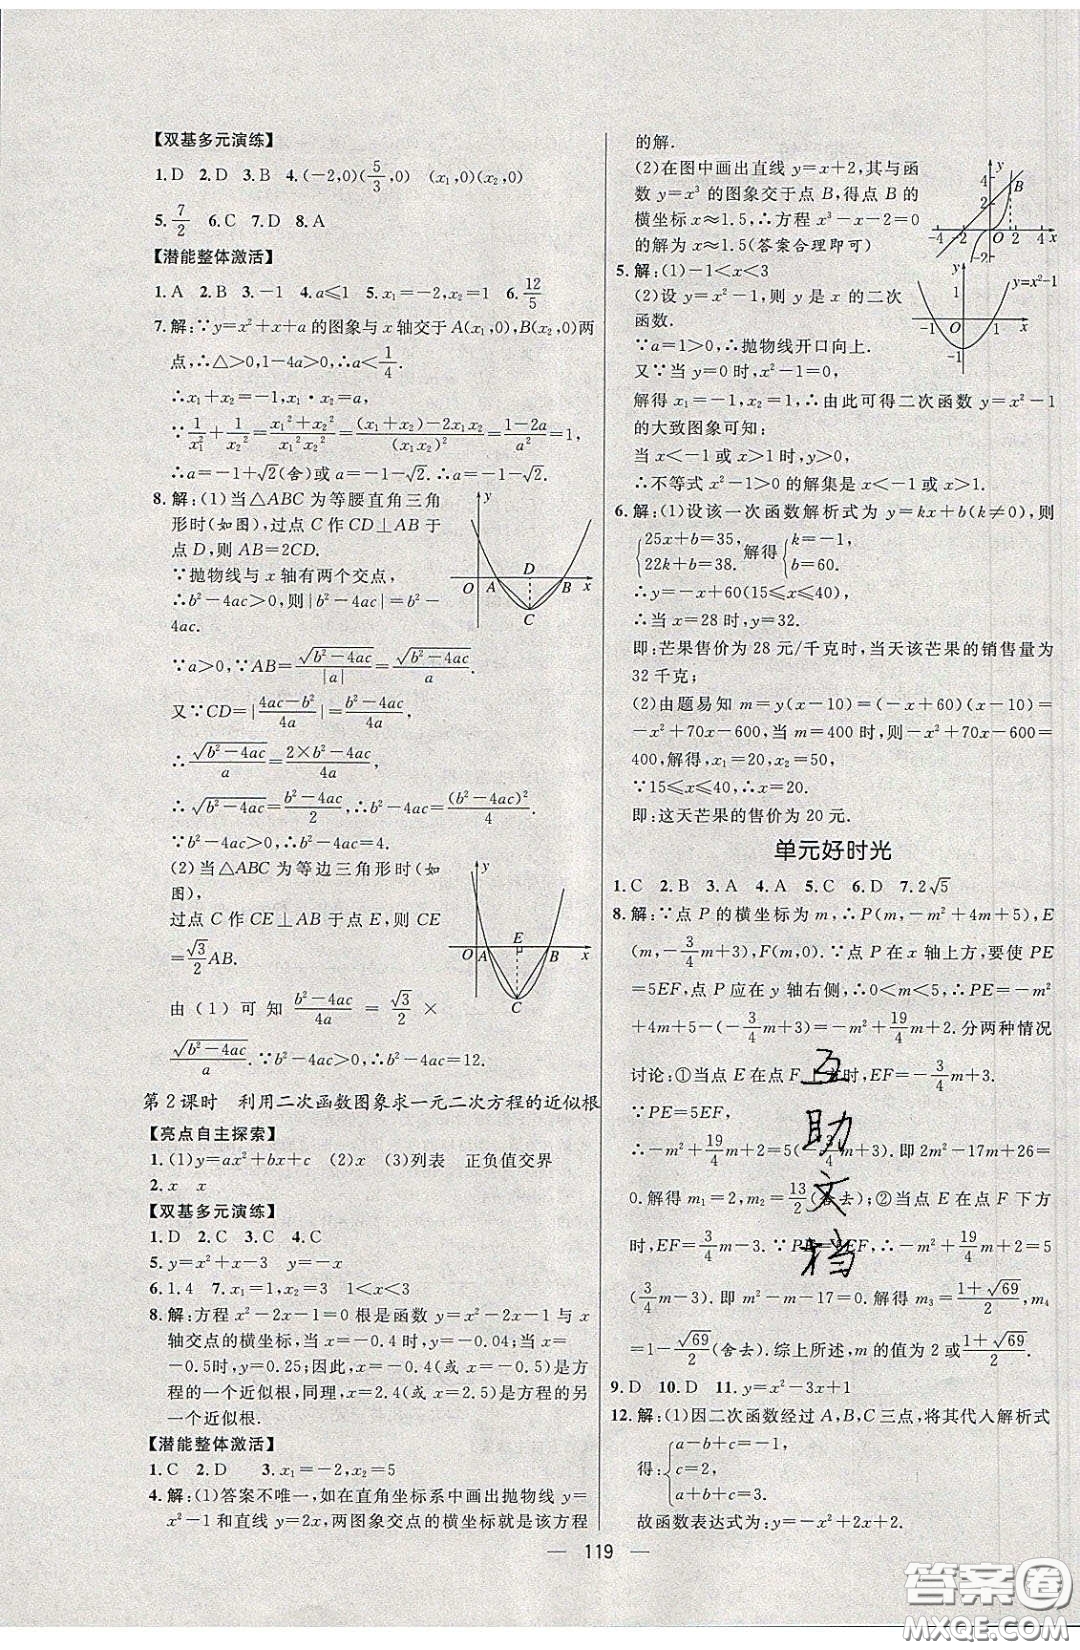 【双基多元演练】
1.D 2.D 3.B 4.(-2,0)(5/3,0) (x₁,0)(x₂,0)
5.7/2 6.C 7.D 8.A
【潜能整体激活】
1.A 2.B 3.-1 4.a≤1 5.x₁=-2,x₂=1 6.12/5
7.解:∵y=x²+x+a的图象与x轴交于A(x₁,0),B(x₂,0)两
点,∴△>0,1-4a>0,∴a<1/4.
∴x₁+x₂=-1,x₁·x₂=a,
∵1/x₁²+1/x₂²=(x₁²+x₂²)/(x₁²x₂²)=((x₁+x₂)-2x₁x₂)/(x₁x₂)²=(1-2a)/a²=1,
∴a=-1+√2(舍)或a=-1-√2.
8.解:(1)当△ABC为等腰直角三角
形时(如图),过点C作CD⊥AB于
点D,则AB=2CD.
∵抛物线与x轴有两个交点,
∴b²-4ac>0,则|b²-4ac|=b²-
4ac.
∵a>0,∵AB=√(b²-4ac)/|a|=√(b²-4ac)/a.
又∵CD=|(4ac-b²)/4a|=(b²-4ac)/4a,
∴√(b²-4ac)/a=(2×b²-4ac)/4a,
∴√(b²-4ac)=(b²-4ac)/2,∴b²-4ac=(b²-4ac)²/4.
∵b²-4ac>0,∴b²-4ac=4.
y
O A D B x
C
(2)当△ABC为等边三角形时(如
图),
过点C作CE⊥AB于点E,则CE=
√3/2AB.
由(1)可知(b²-4ac)/4a=√3/2×
√(b²-4ac)/a.∵b²-4ac>0,∴b²-4ac=12.
y
O A E B x
C
第2课时 利用二次函数图象求一元二次方程的近似根
【亮点自主探索】
1.(1)y=ax²+bx+c (2)x (3)列表 正负值交界
2.x x
【双基多元演练】
1.D 2.C 3.C 4.C
5.y=x²+x-3 y=-x
6.1.4 7.x₁=1,x₂=3 1<x<3
8.解:方程x²-2x-1=0根是函数y=x²-2x-1与x
轴交点的横坐标,当x=-0.4时,y=-0.04;当x=
-0.5时,y=0.25;因此,x=-0.4(或x=-0.5)是方
程的一个近似根,同理,x=2.4(或x=2.5)是方程的另
一个近似根.
【潜能整体激活】
1.C 2.D 3.x₁=-2,x₂=5
4.解:(1)答案不唯一,如在直角坐标系中画出抛物线y=
x²-1和直线y=2x,两图象交点的横坐标就是该方程
的解.
(2)在图中画出直线y=x+2,其与函
数y=x³的图象交于点B,得点B的
横坐标x≈1.5,∴方程x³-x-2=0
的解为x≈1.5(答案合理即可)
y
4
2
B
-4 -2 O 2 4 x
-2
5.解:(1)-1<x<3
(2)设y=x²-1,则y是x的二次
函数.
∵a=1>0,∴抛物线开口向上.
又∵当y=0时,x²-1=0,
解得x₁=-1,x₂=1,∴由此可得二次函数y=x²-1
的大致图象可知:
当x<-1或x>1时,y>0.
∴不等式x²-1>0的解集是x<-1或x>1.
y y=x²-1
-1 O 1 x
-1
6.解:(1)设该一次函数解析式为y=kx+b(k≠0),则
{25x+b=35, 22k+b=38. 解得{k=-1, b=60.
∴y=-x+60(15≤x≤40),
∴当x=28时,y=32.
即:芒果售价为28元/千克时,当天该芒果的销售量为
32千克;
(2)由题易知m=y(x-10)=(-x+60)(x-10)=
-x²+70x-600,当m=400时,则-x²+70x-600=
400,解得,x₁=20,x₂=50,
∵15≤x≤40,∴x=20.
即:这天芒果的售价为20元.
单元好时光
1.C 2.B 3.A 4.A 5.C 6.D 7.2√5
8.解:∵点P的横坐标为m,∴P(m,-m²+4m+5),E
(m,-3/4m+3),F(m,0).∵点P在x轴上方,要使PE
=5EF,点P应在y轴右侧,∴0<m<5,∴PE=-m²
+4m+5-(-3/4m+3)=-m²+19/4m+2.分两种情况
讨论:①当点E在点F上方时,EF=-3/4m+3.
∵PE=5EF,
∴-m²+19/4m+2=5(-3/4m+3).即2m²-17m+26=
0.解得m₁=2,m₂=13/2(舍去);②当点E在点F下方
时,EF=3/4m-3.∵PE=5EF,∴-m²+19/4m+2=5
(3/4m-3).即m²-m-17=0.解得m₃=(1+√69)/2,m₄
=(1-√69)/2(舍去).综上所述,m的值为2或(1+√69)/2.
9.D 10.D 11.y=x²-3x+1
12.解:(1)因二次函数经过A,B,C三点,将其代人解析式
得:{a-b+c=-1, c=2, a+b+c=3.
故函数表达式为:y=-x²+2x+2.
互助文档
119
答案圈
MXQE.COM